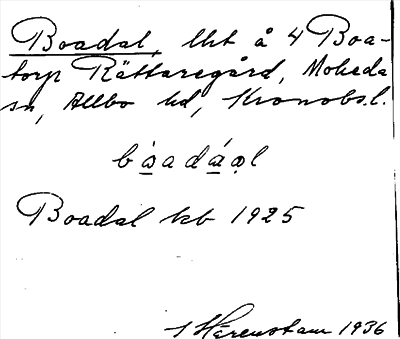 Boadal, lht å 4 Boa-
torp Rättaregård, Moheda
sn, Allbo hd, Kronobs. l.
bo̱adáo̱l
Boadal kb 1925
Härenstam 1936